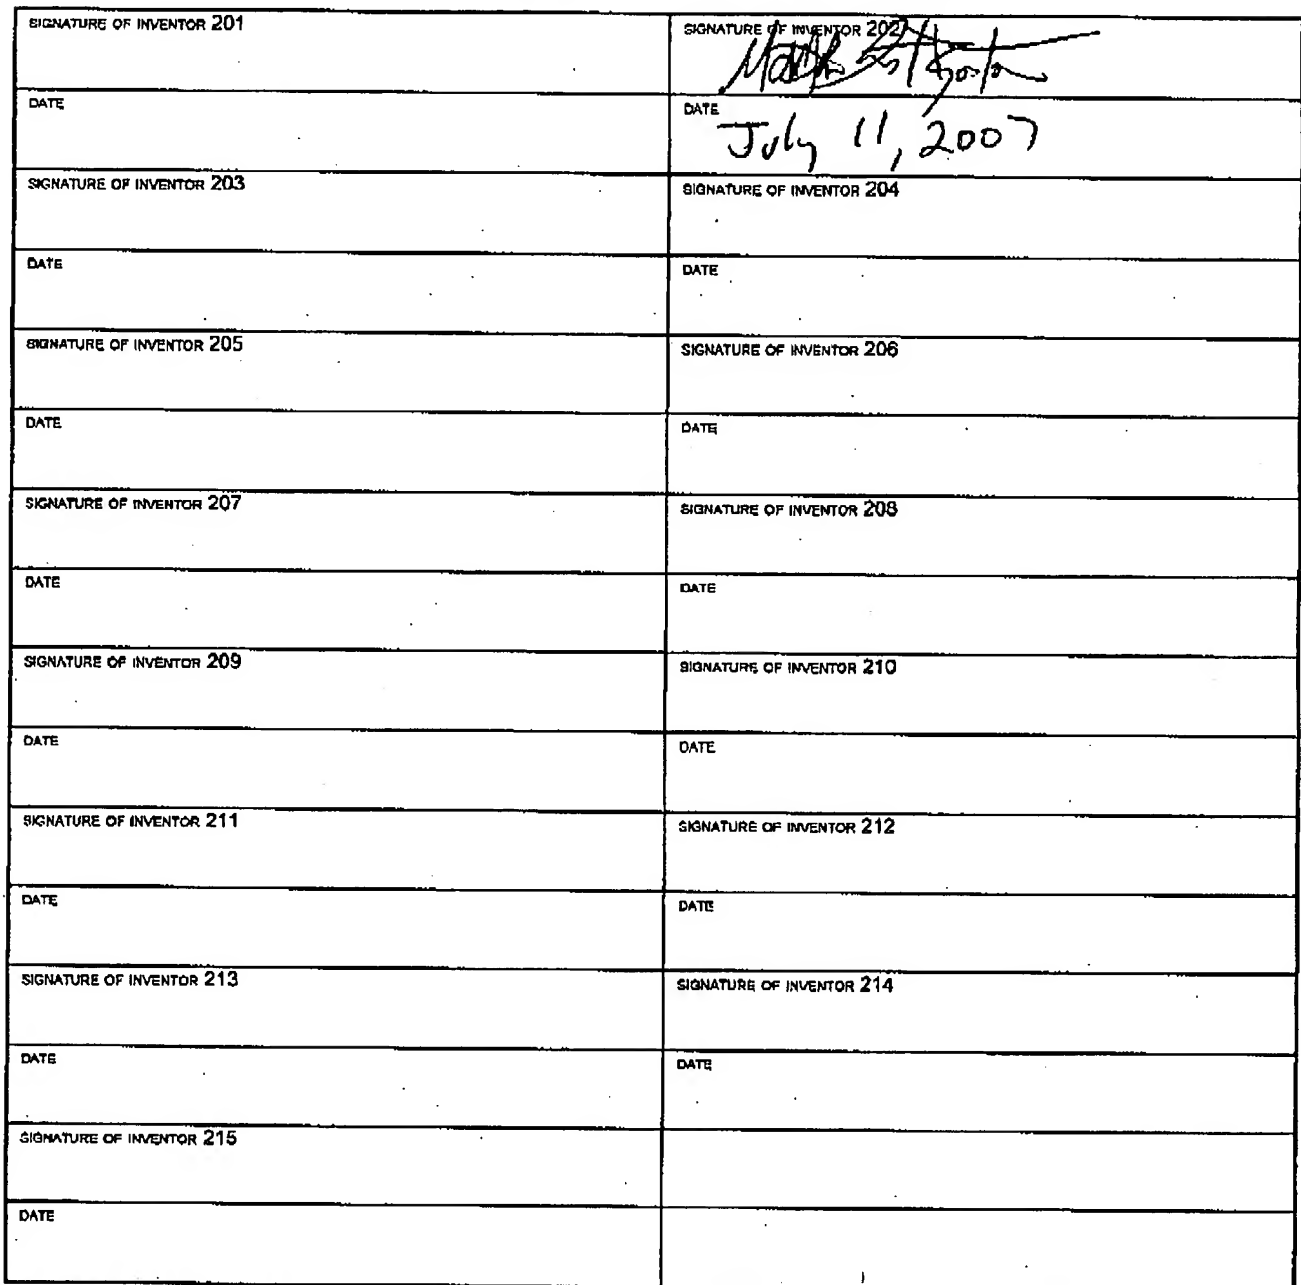 SIGNATURE OF INVENTOR 201
SIGNATURE OF INVENTOR 202
DATE
DATE
July 11, 2007
SIGNATURE OF INVENTOR 203
SIGNATURE OF INVENTOR 204
DATE
DATE
SIGNATURE OF INVENTOR 205
SIGNATURE OF INVENTOR 206
DATE
DATE
SIGNATURE OF INVENTOR 207
SIGNATURE OF INVENTOR 208
DATE
DATE
SIGNATURE OF INVENTOR 209
SIGNATURE OF INVENTOR 210
DATE
DATE
SIGNATURE OF INVENTOR 211
SIGNATURE OF INVENTOR 212
DATE
DATE
SIGNATURE OF INVENTOR 213
SIGNATURE OF INVENTOR 214
DATE
DATE
SIGNATURE OF INVENTOR 215
DATE